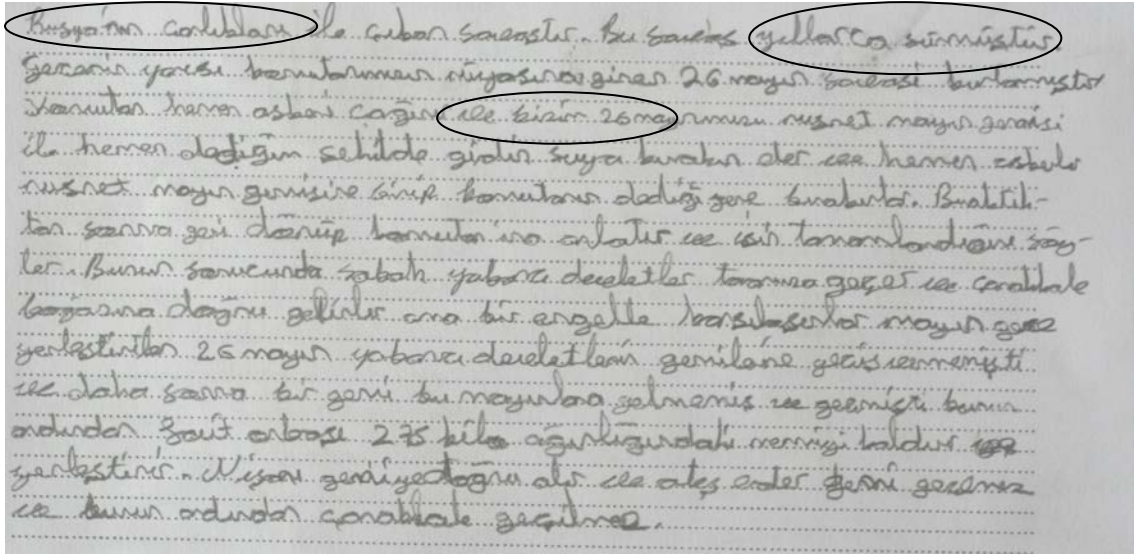 Rusya'nın Carlıkları ile çıkan savaştır. Bu savaş yıllarca sürmüştür
gecenin yarısı komutanımızın rüyasına giren 26 mayın savaşı kurtarmıştır
Komutan hemen askeri çağırır ve bizim 26 mayınımızı nusret mayın gemisi
ile hemen dediğim şekilde gidin suya bırakın der ve hemen
nusret mayın gemisine binip komutanın dediği yere bırakırlar. Bıraktık-
tan sonra geri dönüp komutanına anlatır ve işin tamamlandığını söy-
ler. Bunun sonucunda sabah yabancı devletler geçer ve çanakkale
boğazına doğru gelirler ama bir engelle karşılaşırlar mayın yere
yerleştirilen 26 mayın yabancı devletlerin gemilerine geçiş vermemişti
ve daha sonra bir gemi bu mayınlara gelmemiş ve geçmişti bunun
ardından Seyit onbaşı 275 kilo ağırlığındaki mermiyi kaldırır
yerleştirir. Nişanı gemiye doğru alır ve ateş eder gemi geçemez
ve bunun ardından çanakkale geçilmez.